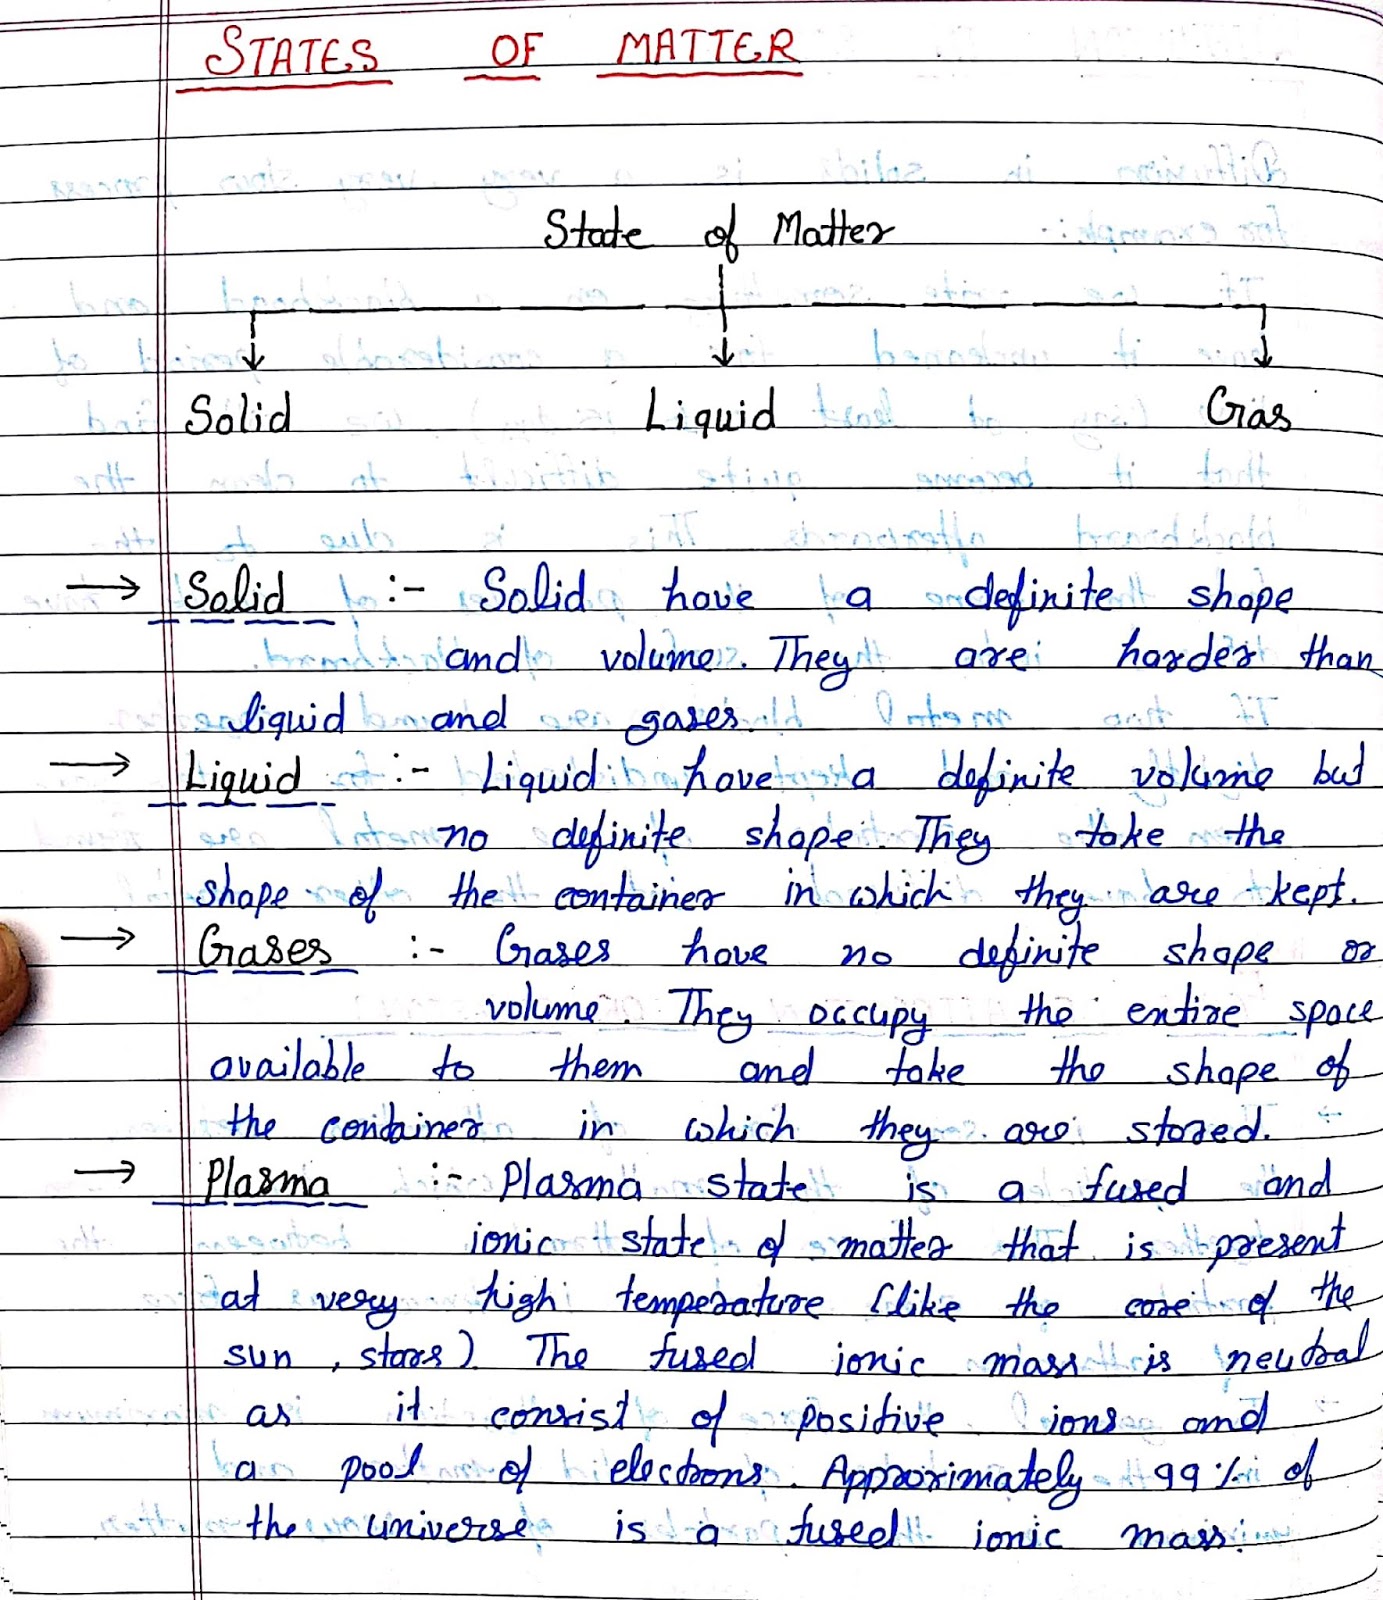 STATES OF MATTER
State of Matter
Solid Liquid Gas
→ Solid :- Solid have a definite shape
and volume. They are harder than
liquid and gases.
→ Liquid :- Liquid have a definite volume but
no definite shape. They take the
shape of the container in which they are kept.
→ Gases :- Gases have no definite shape or
volume. They occupy the entire space
available to them and take the shape of
the container in which they are stored.
→ Plasma :- Plasma state is a fused and
ionic state of matter that is present
at very high temperature (like the core of the
sun, stars). The fused ionic mass is neutral
as it consist of positive ions and
a pool of electrons. Approximately 99% of
the universe is a fused ionic mass.